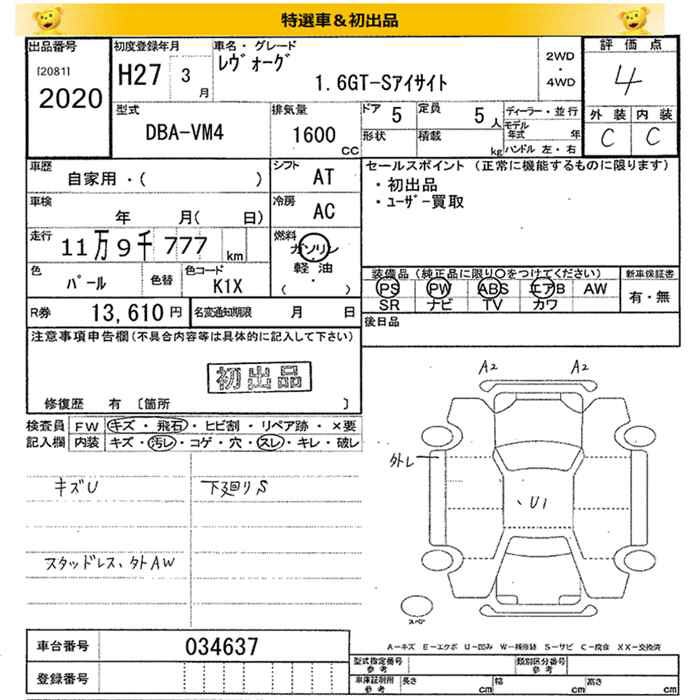 特選車&初出品
出品番号
[2081]
2020
初度登録年月
H27 3 月
車名・グレード
レヴォーグ
1.6GT-Sアイサイト
2WD
・
4WD
評価点
4
外装 内装
C C
型式
DBA-VM4
排気量
1600 cc
ドア 5
形状
定員 5 人
積載 kg
ディーラー・並行
モデル年式 年
ハンドル 左・右
車歴
自家用・( )
シフト AT
車検
年 月( 日)
冷房 AC
走行
11万9千777 km
燃料
ガソリン
軽油
( ・ )
色 パール
色替
色コード K1X
R券 13,610円
名変通知期限 月 日
セールスポイント (正常に機能するものに限ります)
・初出品
・ユーザー買取
装備品(純正品に限り○をつけてください)
PS PW ABS エアB AW
SR ナビ TV カワ
新車保証書
有・無
後日品
注意事項申告欄(不具合内容等は具体的に記入して下さい)
初出品
修復歴 有 〔箇所 〕
検査員記入欄
FW キズ・飛石・ヒビ割・リペア跡・×要
内装 キズ・汚レ・コゲ・穴・スレ・キレ・破レ
キズU 下廻りS
スタッドレス、タトAW
A2 A2
外レ
U1
スペア
A-キズ E-エクボ U-凹み W-補修跡 S-サビ C-腐食 XX-交換済
車台番号 034637
登録番号
型式指定番号 参考
類別区分番号 参考
車庫証明用 参考
長さ cm 幅 cm 高さ cm